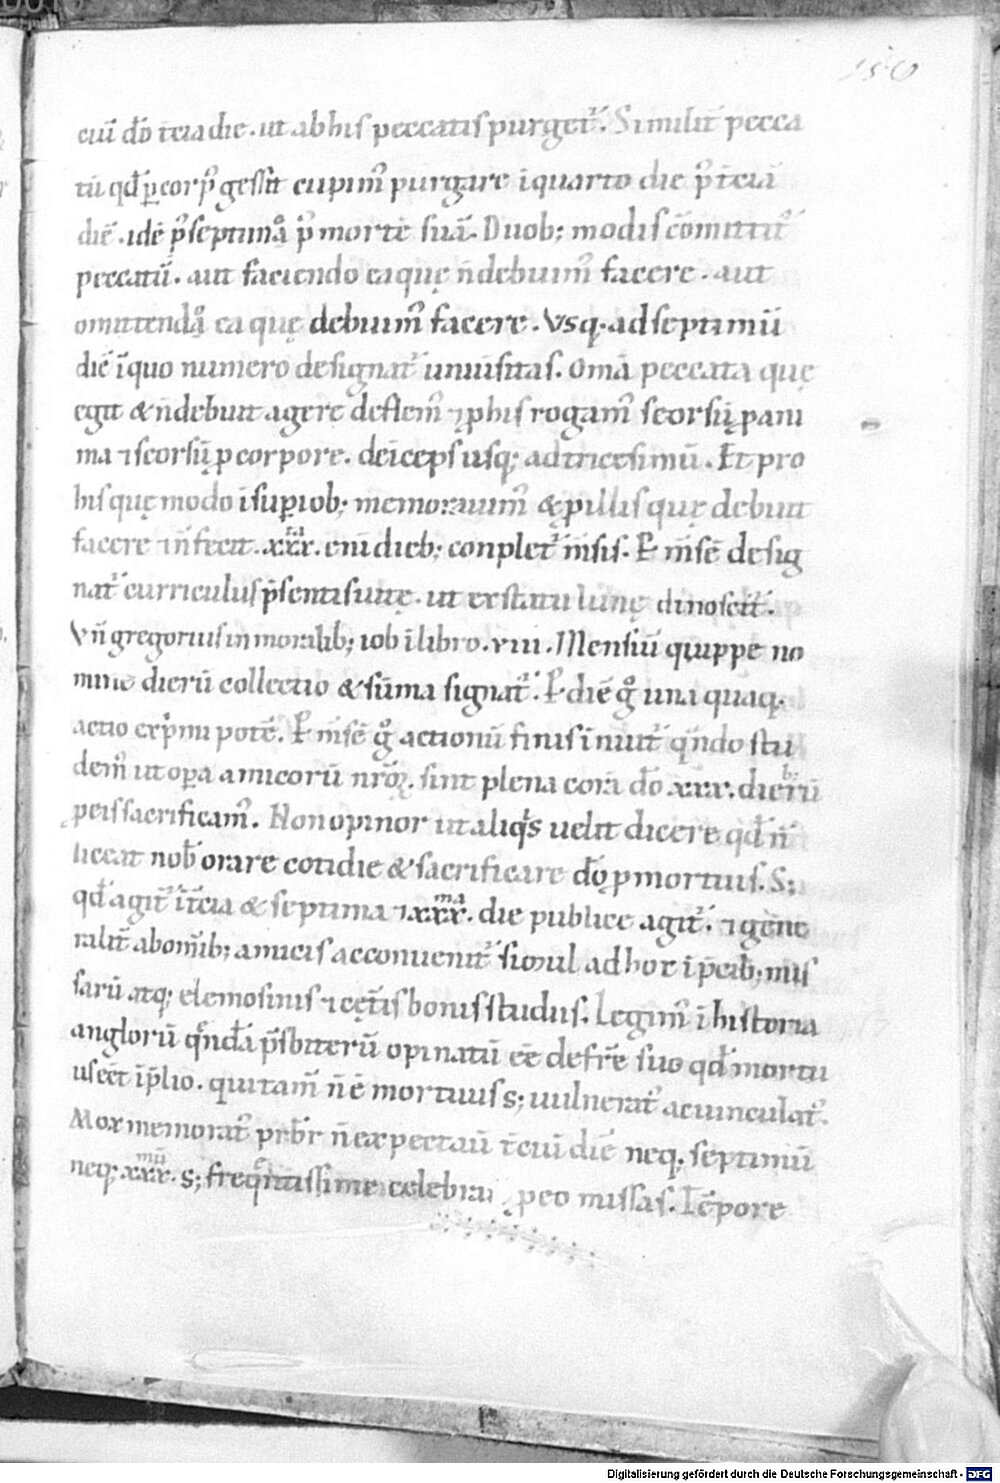 150
eiū dō tciadie. ut abhis peccatis purget᷑. Similit᷑ pecca
tū qd̄ ꝑcorp᷒ gessit cupim᷒ purgare iquarto die p᷒ tciā
diē. idē p᷒septimā p᷒ mortē suā. Duob; modis cōmittit᷑
peccatū. aut faciendo eaquę n̄debuim᷒ facere. aut
omittendo ea quę debuim᷒ facere. Vsq. ad septimū
diē īquo numero designat᷑ uniuͥsitas. omā peccata quę
egit & n̄debuit agere deflem᷒ ⁊ ꝓhis rogam᷒ seorsū ꝓ ani
ma ⁊ seorsū ꝓ corpore. deīceps usq; adtricesimū. Et pro
his quę modo isuꝑiob; memorauim᷒ & ꝓ illis quę debuit
facere ⁊ n̄ fecit. xxx. eni dieb; conplet᷑ m̄sis. P m̄sē desig
nat᷑ curriculus p̄sentis uitę. ut ex statu lunę dinoscit᷑.
Vn̄ gregorius in moralib; iob ī libro. viii. Mensiū quippe no
mine dierū collectio & sūma signat᷑. P diē g᷒ una quaq.
actio exp̄mi potē. P m̄sē g᷒ actionū finis inuit᷑ qn̄do stu
dem᷒ ut opa amicorū nr̄oꝝ. sint plena corā dō. xxx. dierū
ꝓ eis sacrificam᷒. Non opinor ut aliqͥs uelit dicere qd̄ n̄
liceat nob orare cotidie & sacrificare dō ꝓ mortuis. S;
qd̄ agit᷑ ī t̄cia & septima ⁊ xxxma. die publice agit᷑. ⁊ gene
ralit᷑ abomīb; amicis acconuenit᷑ simul ad hoc ī p̄cib; mis
sarū atq; elemosinis ⁊ cęt̄is bonis studiis. Legim᷒ ī historia
anglorū qͣndā p̄sbiterū opinatū eē defr̄e suo qd̄ mortu
us eēt īp̄lio. qui tam̄ n̄ ē mortuus s; uulnerat᷒ ac uinculat᷒.
Mox memorat᷒ prb̄r n̄ expectauͥ t̄ciū diē neq; septimū
neq; xxxmū. s; freqͥntissime celebrauͥ ꝓ eo missas. Tēpore
Digitalisierung gefördert durch die Deutsche Forschungsgemeinschaft - DFG